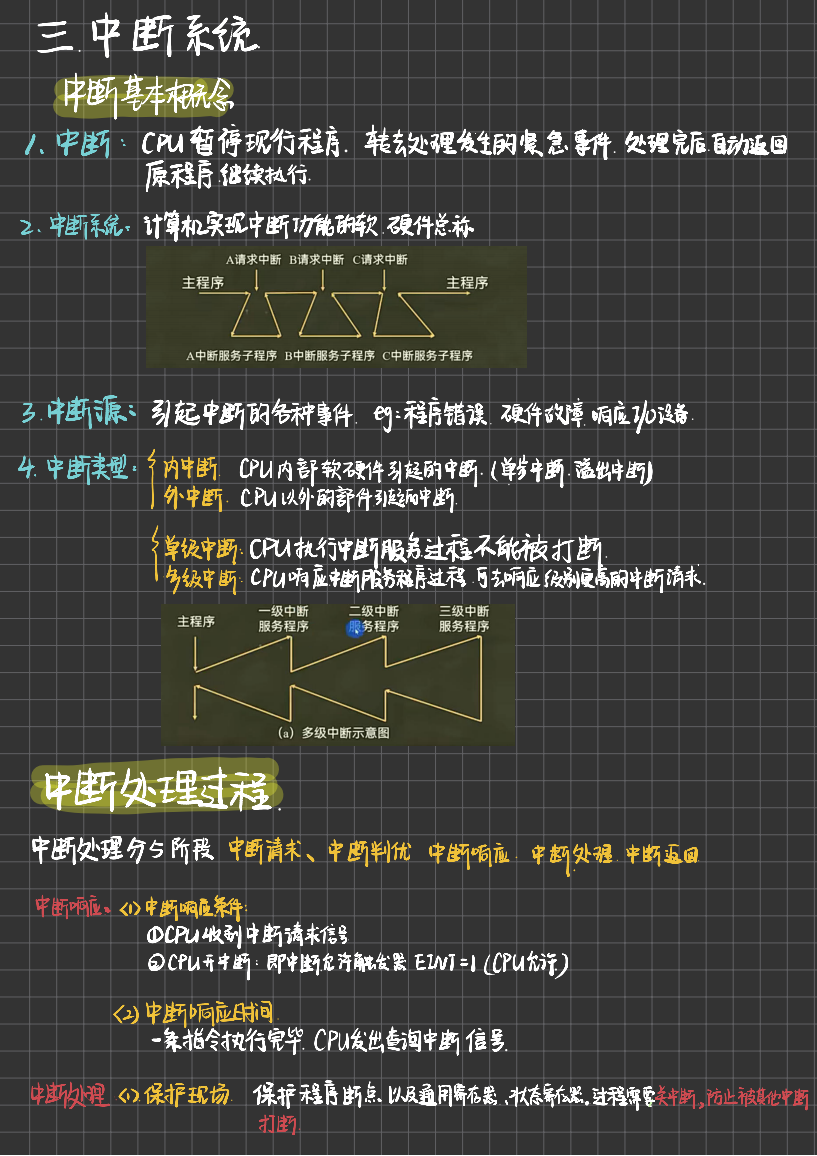 三.中断系统
中断基本概念
1、中断：CPU暂停现行程序.转去处理发生的紧急事件.处理完后自动返回
原程序继续执行.
2.中断系统：计算机实现中断功能的软.硬件总称
A请求中断 B请求中断 C请求中断
主程序 主程序
A中断服务子程序 B中断服务子程序 C中断服务子程序
3.中断源：引起中断的各种事件.eg:程序错误.硬件故障.响应I/O设备.
4.中断类型：内中断.CPU内部软硬件引起的中断.(单步中断.溢出中断)
外中断.CPU以外的部件引起的中断.
单级中断:CPU执行中断服务过程不能被打断.
多级中断:CPU响应中断服务程序过程.可去响应级别更高的中断请求.
主程序 一级中断服务程序 二级中断服务程序 三级中断服务程序
(a) 多级中断示意图
中断处理过程.
中断处理分5阶段 中断请求、中断判优 中断响应.中断处理.中断返回
中断响应。(1)中断响应条件:
①CPU收到中断请求信号
②CPU开中断：即中断允许触发器EINT=1(CPU允许)
(2)中断响应时间.
一条指令执行完毕.CPU发出查询中断信号.
中断处理(1)保护现场 保护程序断点、以及通用寄存器、状态寄存器。过程需要关中断。防止被其他中断
打断.